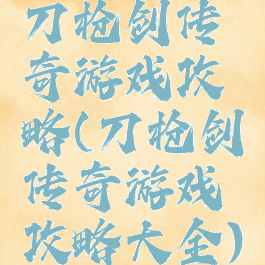 刀枪剑传
奇游戏攻
略(刀枪剑
传奇游戏
攻略大全)